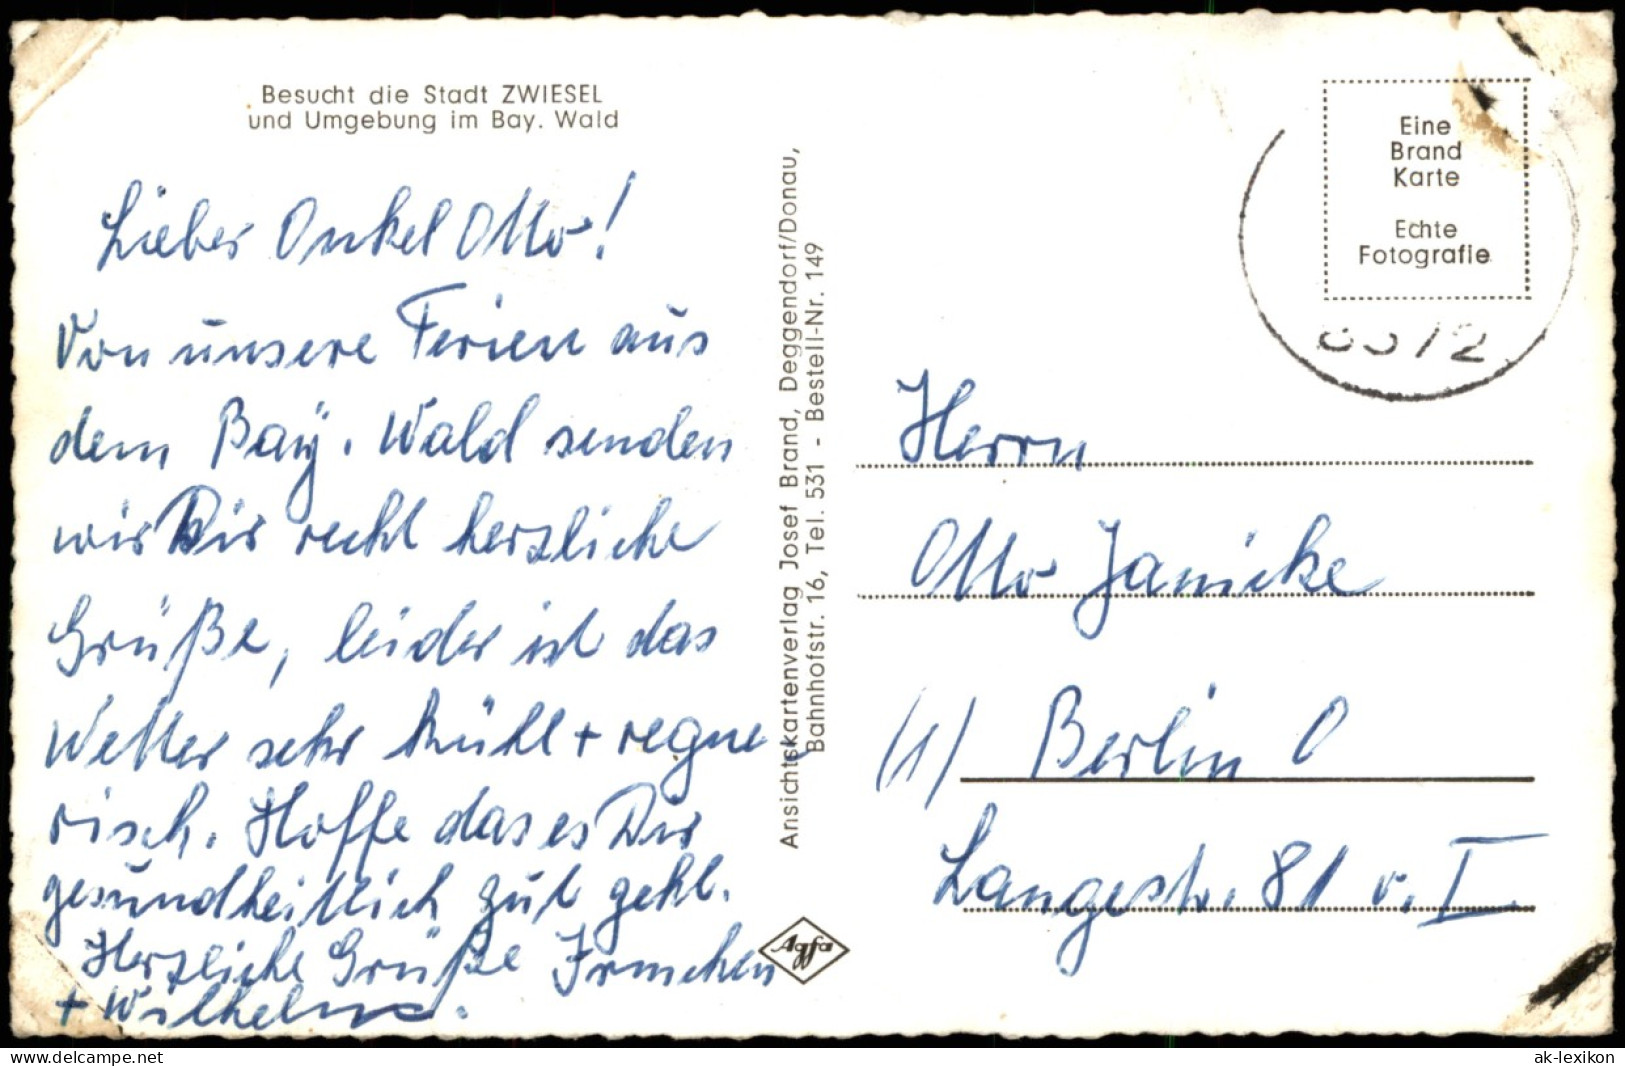 Besucht die Stadt ZWIESEL
und Umgebung im Bay. Wald
Lieber Onkel Otto!
Von unsere Ferien aus
dem Bay. Wald senden
wir Dir recht herzliche
Grüße, leider ist das
Wetter sehr kühl + regne
risch. Hoffe das es Dir
gesundheitlich gut geht.
Herzliche Grüße Irmchen
+ Wilhelm.
Ansichtskartenverlag Josef Brand, Deggendorf/Donau,
Bahnhofstr. 16, Tel. 531 - Bestell-Nr. 149
Agfa
Eine
Brand
Karte
Echte
Fotografie
Herrn
Otto Janicke
(1) Berlin O
Langestr. 81 v. I
delcampe.net
ak-lexikon